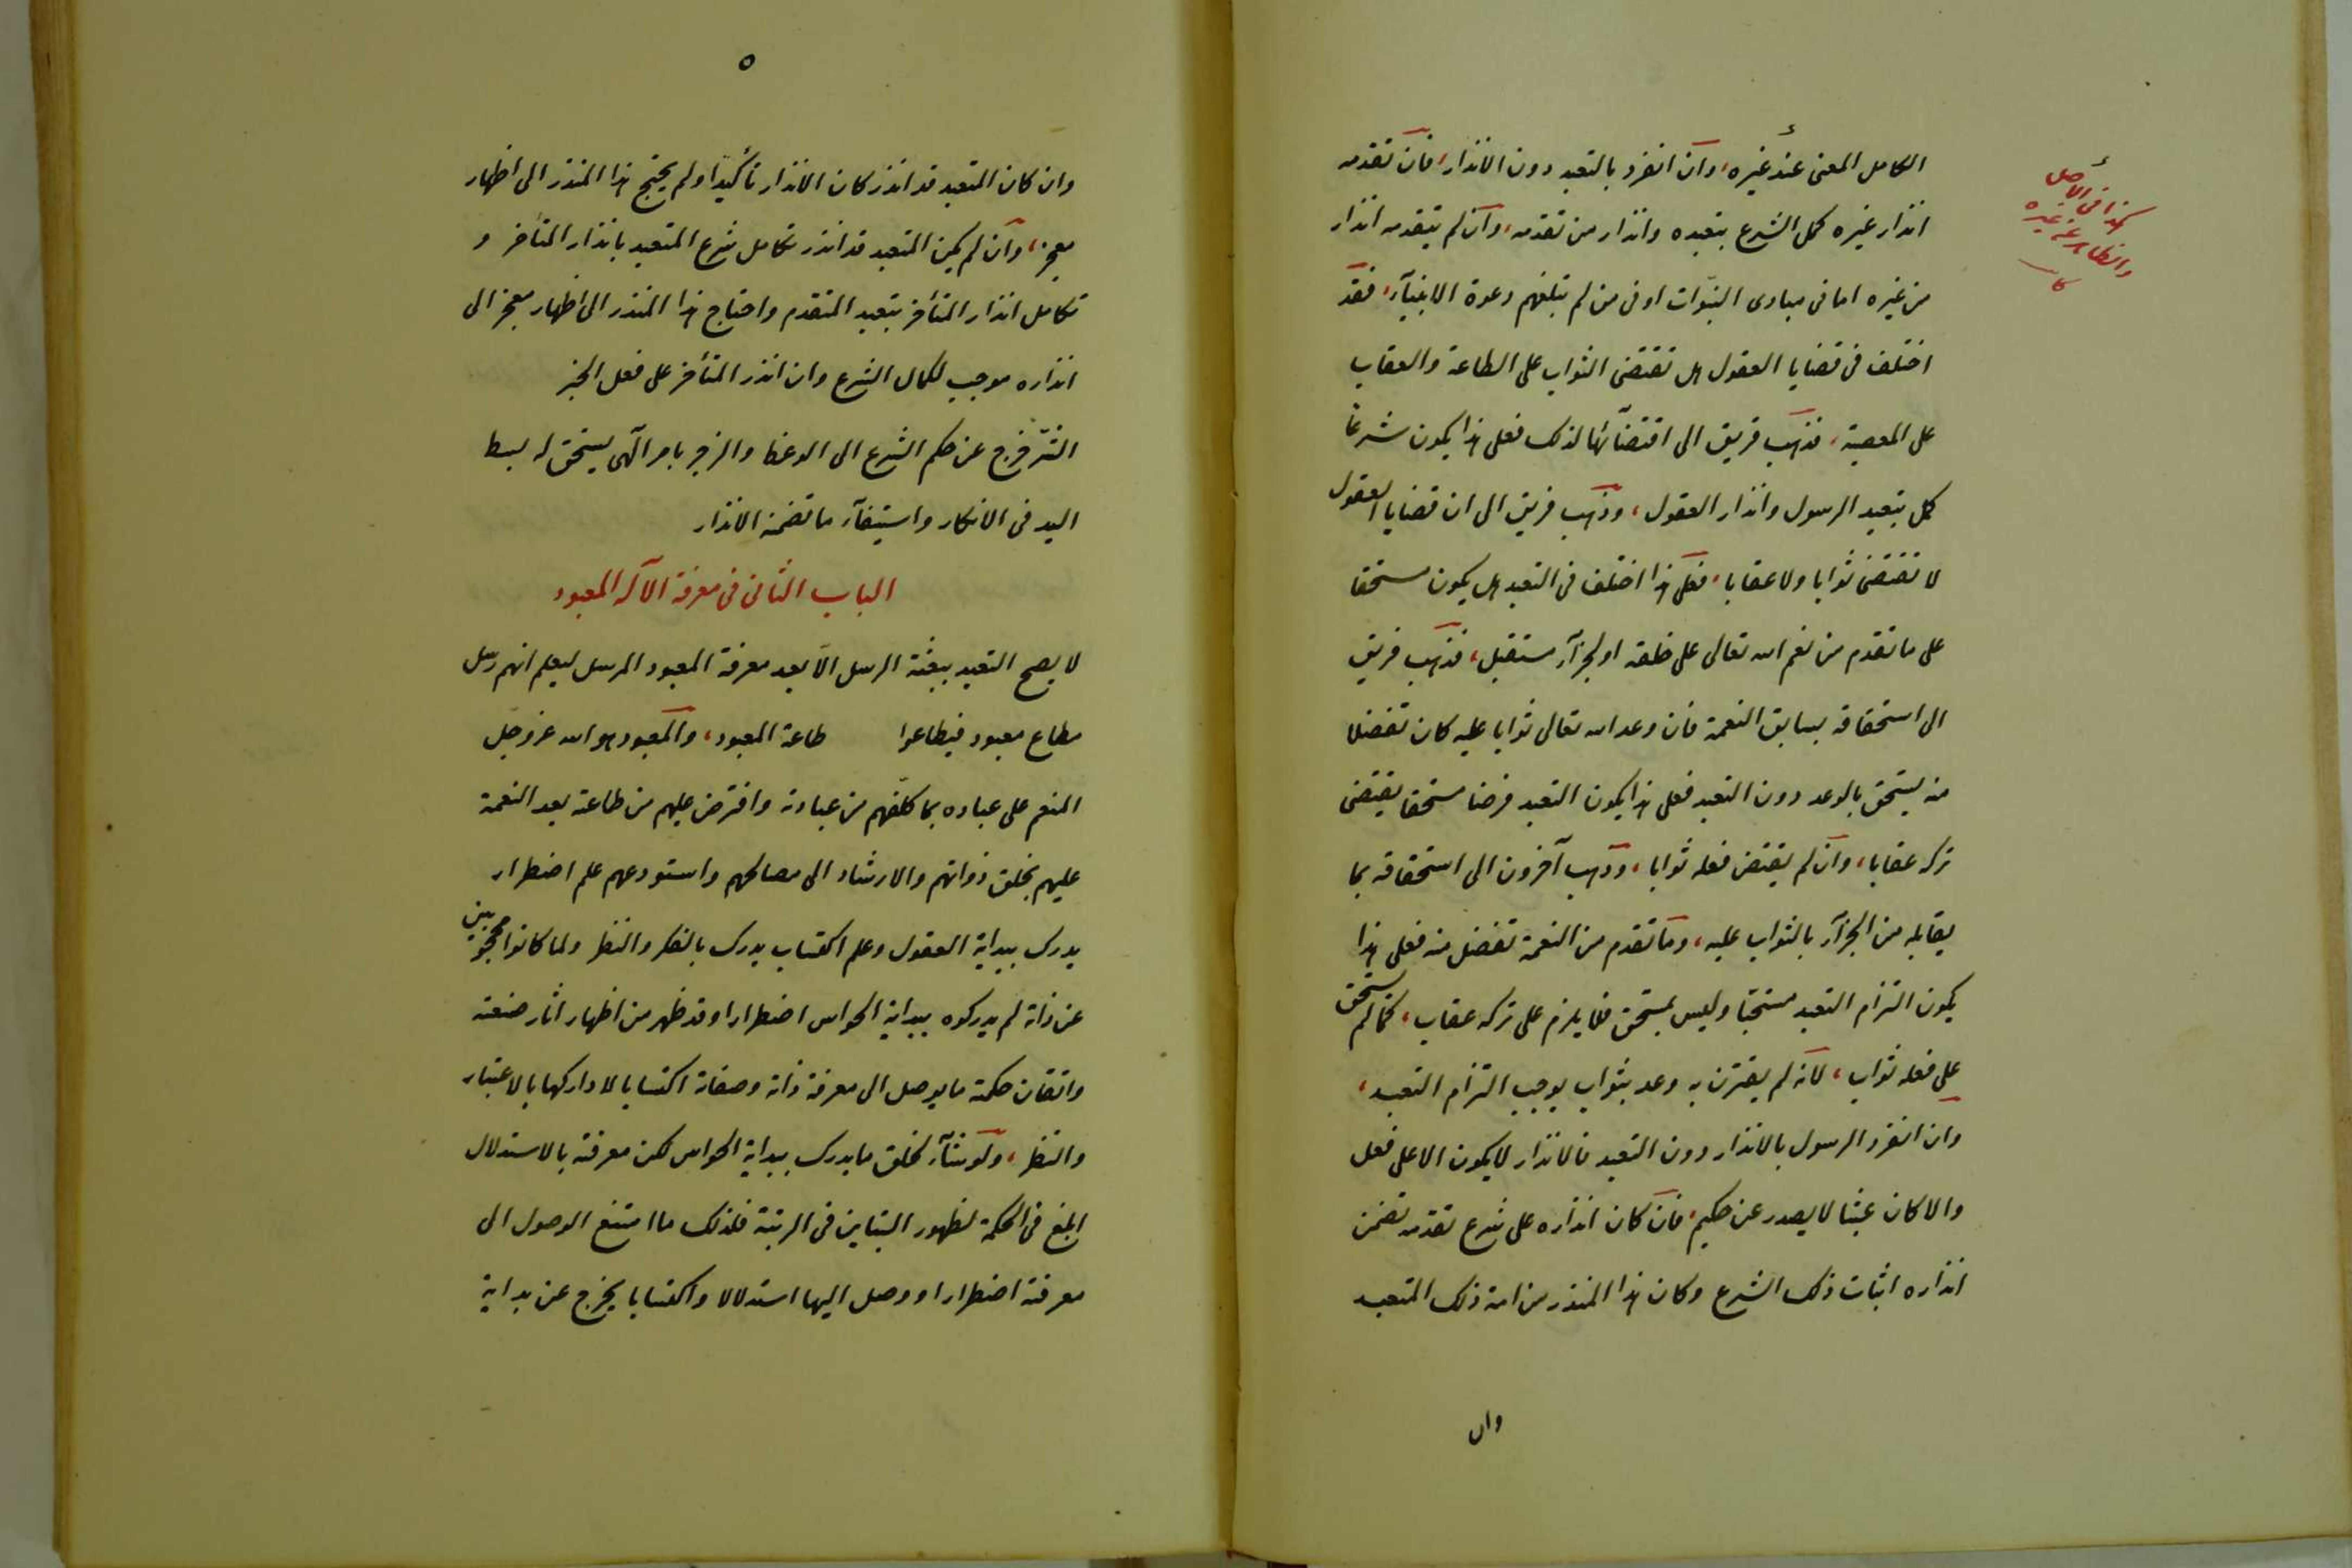 الكامل المغنى عند غيره، وان انفرد بالتعبد دون الانذار، فان تقدمه
انذار غيره كمل الشرع بتعبده وانذار من تقدمه، وان لم يتقدمه انذار
من غيره اما فى مبادى النبوات او فى من لم تبلغهم دعوة الانبيآء، فقد
اختلف فى قضايا العقول هل تقتضى الثواب على الطاعة والعقاب
على المعصية، فذهب فريق الى اقتضآئها لذلك فعلى هذا يكون شرعاً
كمل بتعبد الرسول وانذار العقول، وذهب فريق الى ان قضايا العقول
لا تقتضى ثوابا ولا عقابا، فعلى هذا اختلف فى التعبد هل يكون مستحقا
على ما تقدم من نعم الله تعالى على خلقه او لجزآء مستقبل، فذهب فريق
الى استحقاقه بسابق النعمة فان وعد الله تعالى ثوابا عليه كان تفضلا
منه يستحق بالوعد دون التعبد فعلى هذا يكون التعبد فرضا مستحقا يقتضى
تركه عقابا، وان لم يقتض فعله ثوابا، وذهب آخرون الى استحقاقه بما
يقابله من الجزآء بالثواب عليه، وما تقدم من النعمة تفضل منه فعلى هذا
يكون التزام التعبد مستحبّا وليس بمستحق فلا يلزم على تركه عقاب، كما لم يستحق
على فعله ثواب، لانه لم يقترن به وعد بثواب يوجب التزام التعبد،
وان انفرد الرسول بالانذار دون التعبد فالانذار لا يكون الا على فعل
والا كان عبثا لا يصدر عن حكيم، فان كان انذاره على شرع تقدّمه تضمن
انذاره اثبات ذلك الشرع وكان هذا المنذر من امة ذلك المتعبد
وان
كذا فى الأصل
والظاهر عن غيره
٥
وان كان المتعبد قد انذر كان الانذار تأكيدًا ولم يحتج هذا المنذر الى اظهار
معجز، وان لم يكن المتعبد قد انذر تكامل شرع المتعبد بانذار المتأخر و
تكامل انذار المتأخر بتعبد المتقدم واحتاج هذا المنذر الى اظهار معجز الى
انذاره موجب لكمال الشرع وان انذر المتأخر على فعل الخير
الشرّ فخرج عن حكم الشرع الى الوعظ والزجر بامر الٓهى يستحق له بسط
اليد فى الانكار واستيفآء ما تضمنه الانذار
الباب الثانى فى معرفة الآله المعبود
لا يصح التعبد ببعثة الرسل الّا بعد معرفة المعبود المرسل ليعلم انهم رسل
مطاع معبود فيطاعوا طاعة المعبود، والمعبود هو الله عز وجل
المنعم على عباده بما كلّفهم من عبادته وافترض عليهم من طاعته بعد النعمة
عليهم بخلق ذواتهم والارشاد الى مصالحهم واستودعهم علم اضطرار
يدرك ببداية العقول وعلم اكتساب يدرك بالفكر والنظر ولما كانوا محجوبين
عن ذاته لم يدركوه ببداية الحواس اضطرارا وقد ظهر من اظهار اثار صنعته
واتقان حكمته ما يوصل الى معرفة ذاته وصفاته اكتسابا لادراكها بالاعتبار
والنظر، ولو شآء لخلق ما يدرك ببداية الحواس لكن معرفته بالاستدلال
ابلغ فى الحكمة لظهور التباين فى الرتبة فلذلك ما امتنع الوصول الى
معرفته اضطرارا ووصل اليها استدلالا واكتسابا يخرج عن بداية